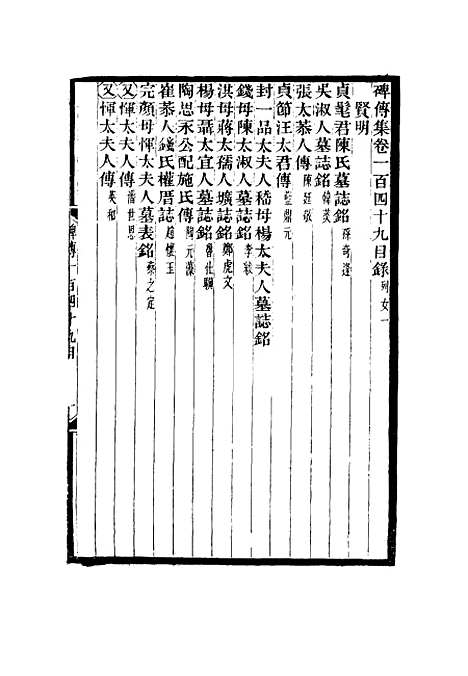 碑傳集卷一百四十九目錄 列女一
賢明
貞髦君陳氏墓誌銘 孫奇逢
吳淑人墓誌銘 韓菼
張太恭人傳 陳廷敬
貞節汪太君傳 藍鼎元
封一品太夫人嵇母楊太夫人墓誌銘
錢母陳太淑人墓誌銘 李紱
洪母蔣太孺人壙誌銘 鄭虎文
楊母聶太宜人墓誌銘 魯仕驥
陶思永公配施氏傳 陶元藻
崔恭人錢氏權厝誌 趙懷玉
完顏母惲太夫人墓表銘 蔡之定
又惲太夫人傳 潘世恩
又惲太夫人傳 英和
碑傳一百四十九目
一